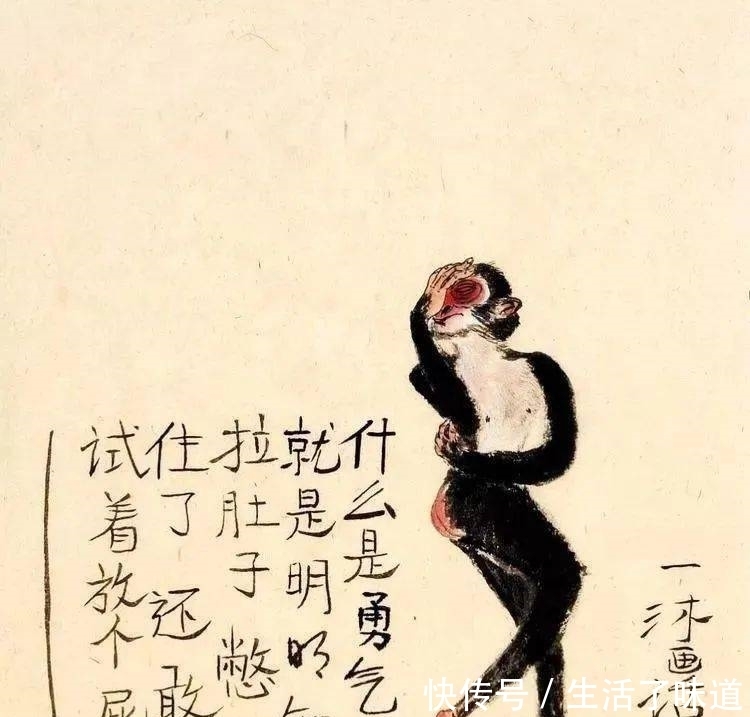 什么是勇气
就是明明
拉肚子憋
住了还敢
试着放个屁
一沐画
快传号 / 生活了味道